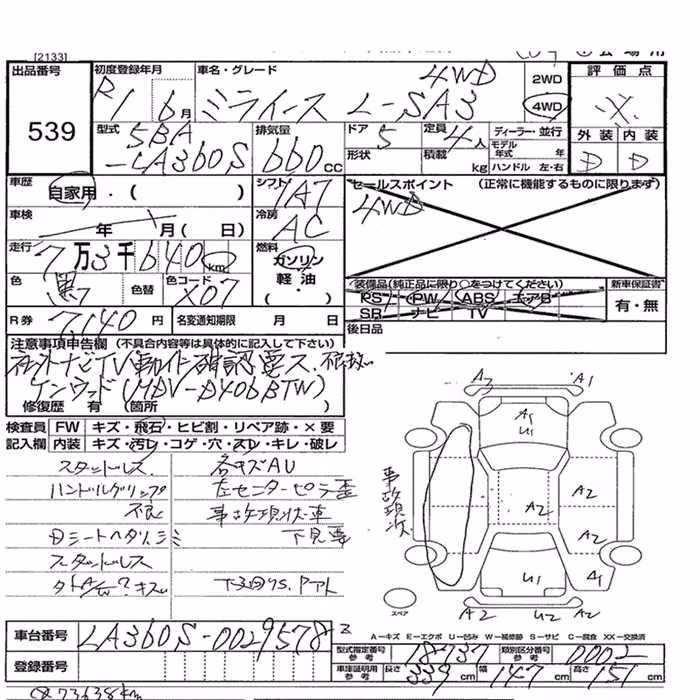 [2133]
出品番号 初度登録年月 車名・グレード 2WD 評価点
539
R1 6月 ミライース L-SA3 4WD 4WD
型式 5BA-LA360S 排気量 660cc ドア 5 定員 4人 ディーラー・並行
形状 積載 kg モデル年式 年 ハンドル 左・右
外装 内装
D D
車歴 自家用・( ) シフト IA7 セールスポイント (正常に機能するものに限ります)
4WD
車検 年 月( 日) 冷房 AC
走行 7万3千640km 燃料 ガソリン・軽油・( )
色 黒 色替 色コード X07
装備品(純正品に限り○をつけてください) 新車保証書
PS PW ABS エアB 有・無
SR ナビ TV
R券 7,140円 名変通知期限 月 日 後日品
注意事項申告欄 (不具合内容等は具体的に記入して下さい)
社外ナビTV動作確認要ス
ケンウッド(MDV-D406BTW)
修復歴 有 (箇所 )
検査員記入欄 FW キズ・飛石・ヒビ割・リペア跡・×要
内装 キズ・汚レ・コゲ・穴・スレ・キレ・破レ
スタッドレス 各キズAU
ハンドルグリップ 左センターピラー歪
不良 事故現状車
下見要
スタッドレス
事故現状
A3 A1
A1
U1
A2 A2
A2
U1 A1
A2 U2 A2
スペア
A－キズ E－エクボ U－凹み W－補修跡 S－サビ C－腐食 XX－交換済
車台番号 LA360S-0029578
型式指定番号 参考 18737 類別区分番号 参考 0002
登録番号 車庫証明用 参考 長さ 339cm 幅 147cm 高さ 151cm
73638km